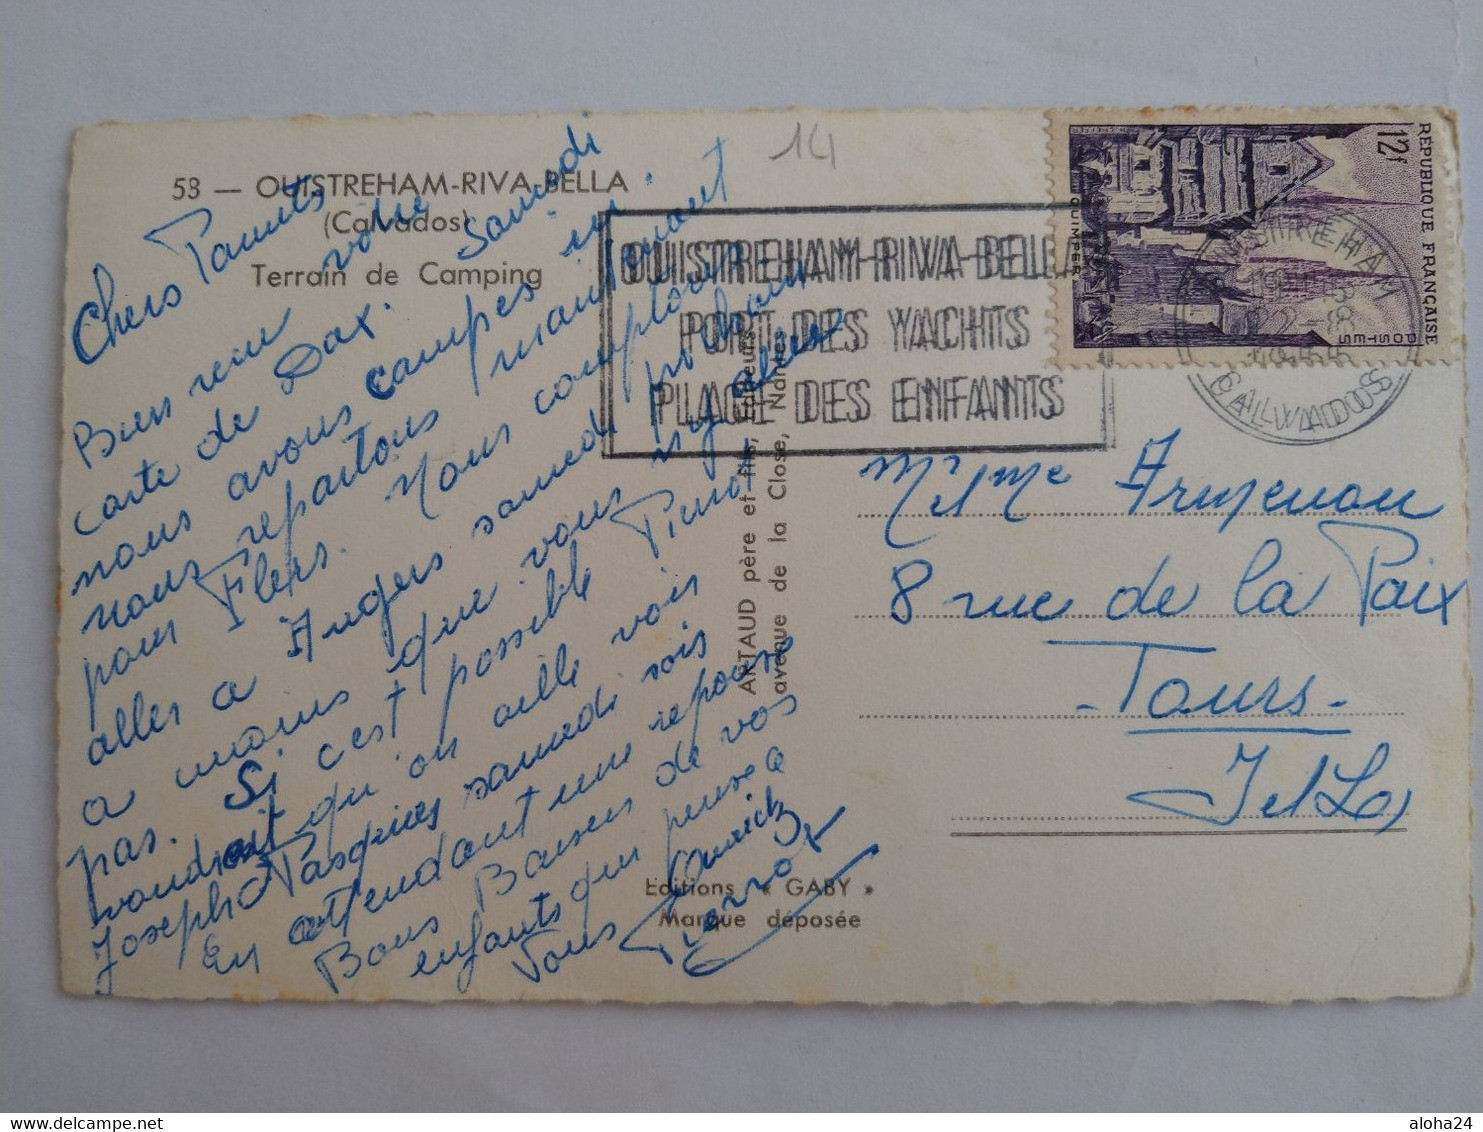 14
53 — OUISTREHAM-RIVA-BELLA
(Calvados)
Terrain de Camping
Chers Parents
Bien reçu votre
carte de Dax. Samedi
nous avons campés ici
nous repartons maintenant
pour Flers. Nous comptons
aller a Angers samedi prochain
a moins que vous n'y allez
pas. Si c'est possible Pierrot
voudrait qu'on aille voir
Joseph Pasquier samedi sois
En attendant une reponse
Bons Baisers de vos
enfants qui pense a
Vous
Pierrot
OUISTREHAM-RIVA-BELLA
PORT DES YACHTS
PLAGE DES ENFANTS
RÉPUBLIQUE FRANÇAISE
12f
POSTES
QUIMPER
OUISTREHAM
CALVADOS
ARTAUD père et fils, Éditeurs
avenue de la Close, Nantes
Editions « GABY »
Marque déposée
Mr et Mme Arnenou
8 rue de la Paix
- Tours -
I et L
delcampe.net
aloha24